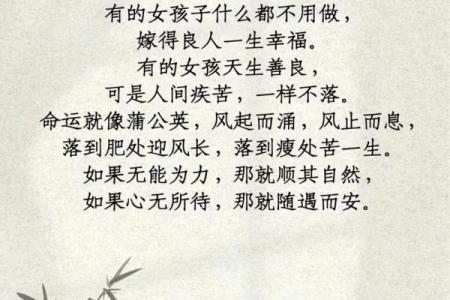 有的女孩子什么都不用做，
嫁得良人一生幸福。
有的女孩天生善良，
可是人间疾苦，一样不落。
命运就像蒲公英，风起而涌，风止而息，
落到肥处迎风长，落到瘦处苦一生。
如果无能为力，那就顺其自然，
如果心无所待，那就随遇而安。